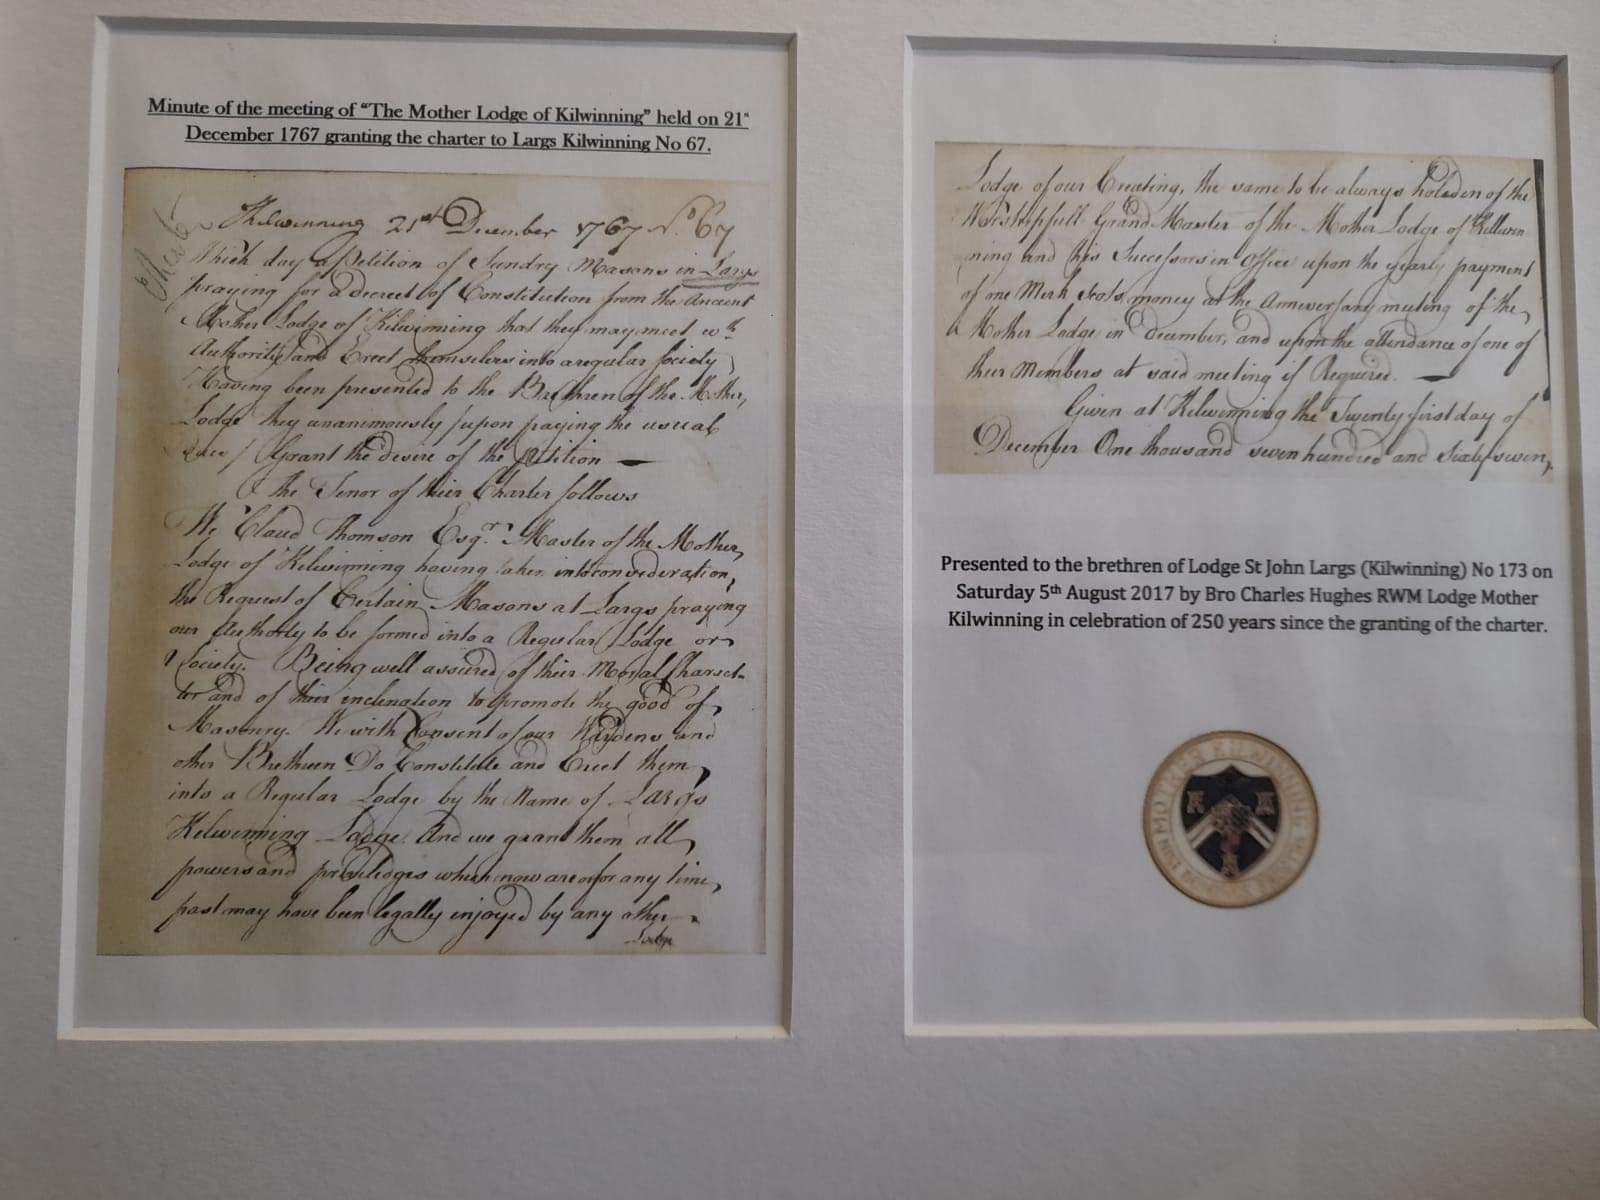 Minute of the meeting of “The Mother Lodge of Kilwinning” held on 21st
December 1767 granting the charter to Largs Kilwinning No 67.
Kilwinning 21st December 1767 No. 67
Which day a Petition of Sundry Masons in Largs
praying for a decreet of Constitution from the Ancient
Mother Lodge of Kilwinning that they may meet wth
Authority and Erect themselves into a regular Society
Having been presented to the Brethren of the Mother
Lodge they unanimously /upon paying the usual
dues/ Grant the desire of the petition —
the Tenor of their Charter follows
We Claud Thomson Esqr. Master of the Mother
Lodge of Kilwinning having taken into consideration,
the Request of Certain Masons at Largs praying
our Authority to be formed into a Regular Lodge or
Society. Being well assured of their Moral Charact-
ter and of their inclination to promote the good of
Masonry. We with Consent of our Wardens and
other Brethren Do Constitute and Erect them
into a Regular Lodge by the Name of Largs
Kilwinning Lodge. And we grant them all
powers and priviledges which now are or for any time
past may have been legally injoyed by any other
Lodge
Lodge of our Creating, the same to be always holden of the
Worshipfull Grand Master of the Mother Lodge of Killwin
ning and his Successors in Office upon the yearly payment
of one Merk Scots money at the Anniversary meeting of the
Mother Lodge in December, and upon the attendance of one of
their Members at said meeting if Required. —
Given at Kilwinning the Twenty first day of
December One thousand seven hundred and sixty seven
Presented to the brethren of Lodge St John Largs (Kilwinning) No 173 on
Saturday 5th August 2017 by Bro Charles Hughes RWM Lodge Mother
Kilwinning in celebration of 250 years since the granting of the charter.
MOTHER KILWINNING